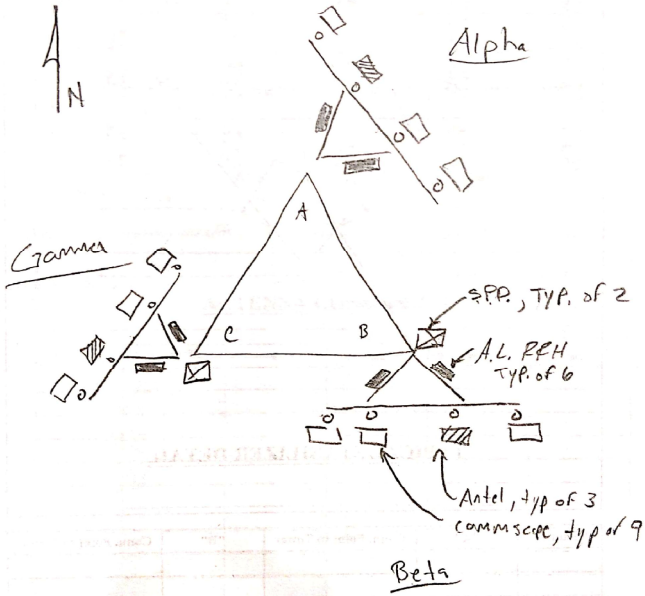 Alpha
N
A
Gamma
S.P.D., Typ. of 2
C
B
A.L. RRH
Typ. of 6
Antel, typ of 3
Commscope, typ of 9
Beta